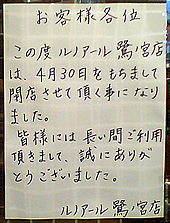 お客様各位
この度ルノアール鷺ノ宮店
は、4月30日をもちまして
閉店させて頂く事になり
ました。
皆様には長い間ご利用
頂きまして、誠にありが
とうございました。
ルノアール鷺ノ宮店